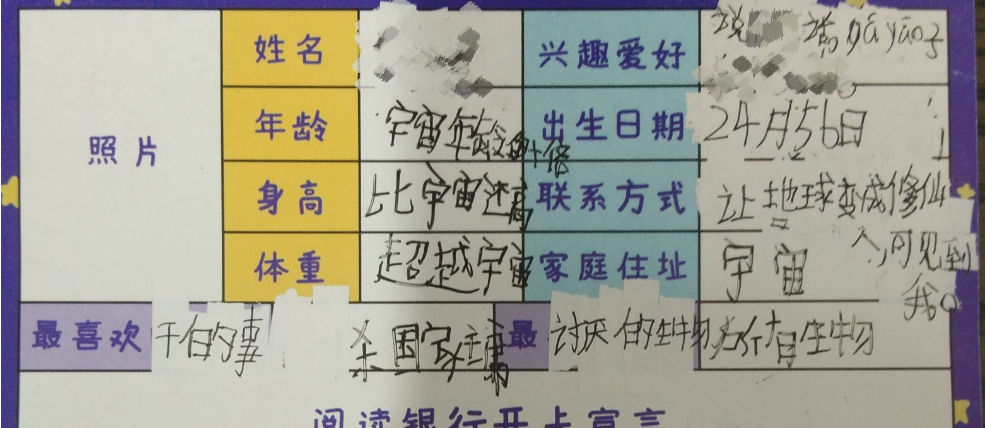 姓名 兴趣爱好 说 请 yāo子
照片 年龄 宇宙年龄的十倍 出生日期 24月56日
身高 比宇宙还高 联系方式 让地球变成修仙
体重 超越宇宙 家庭住址 宇宙 入可见到
我。
最喜欢 干的事 杀国家主席 最 讨厌的生物 所有生物
阅读银行开卡宣言